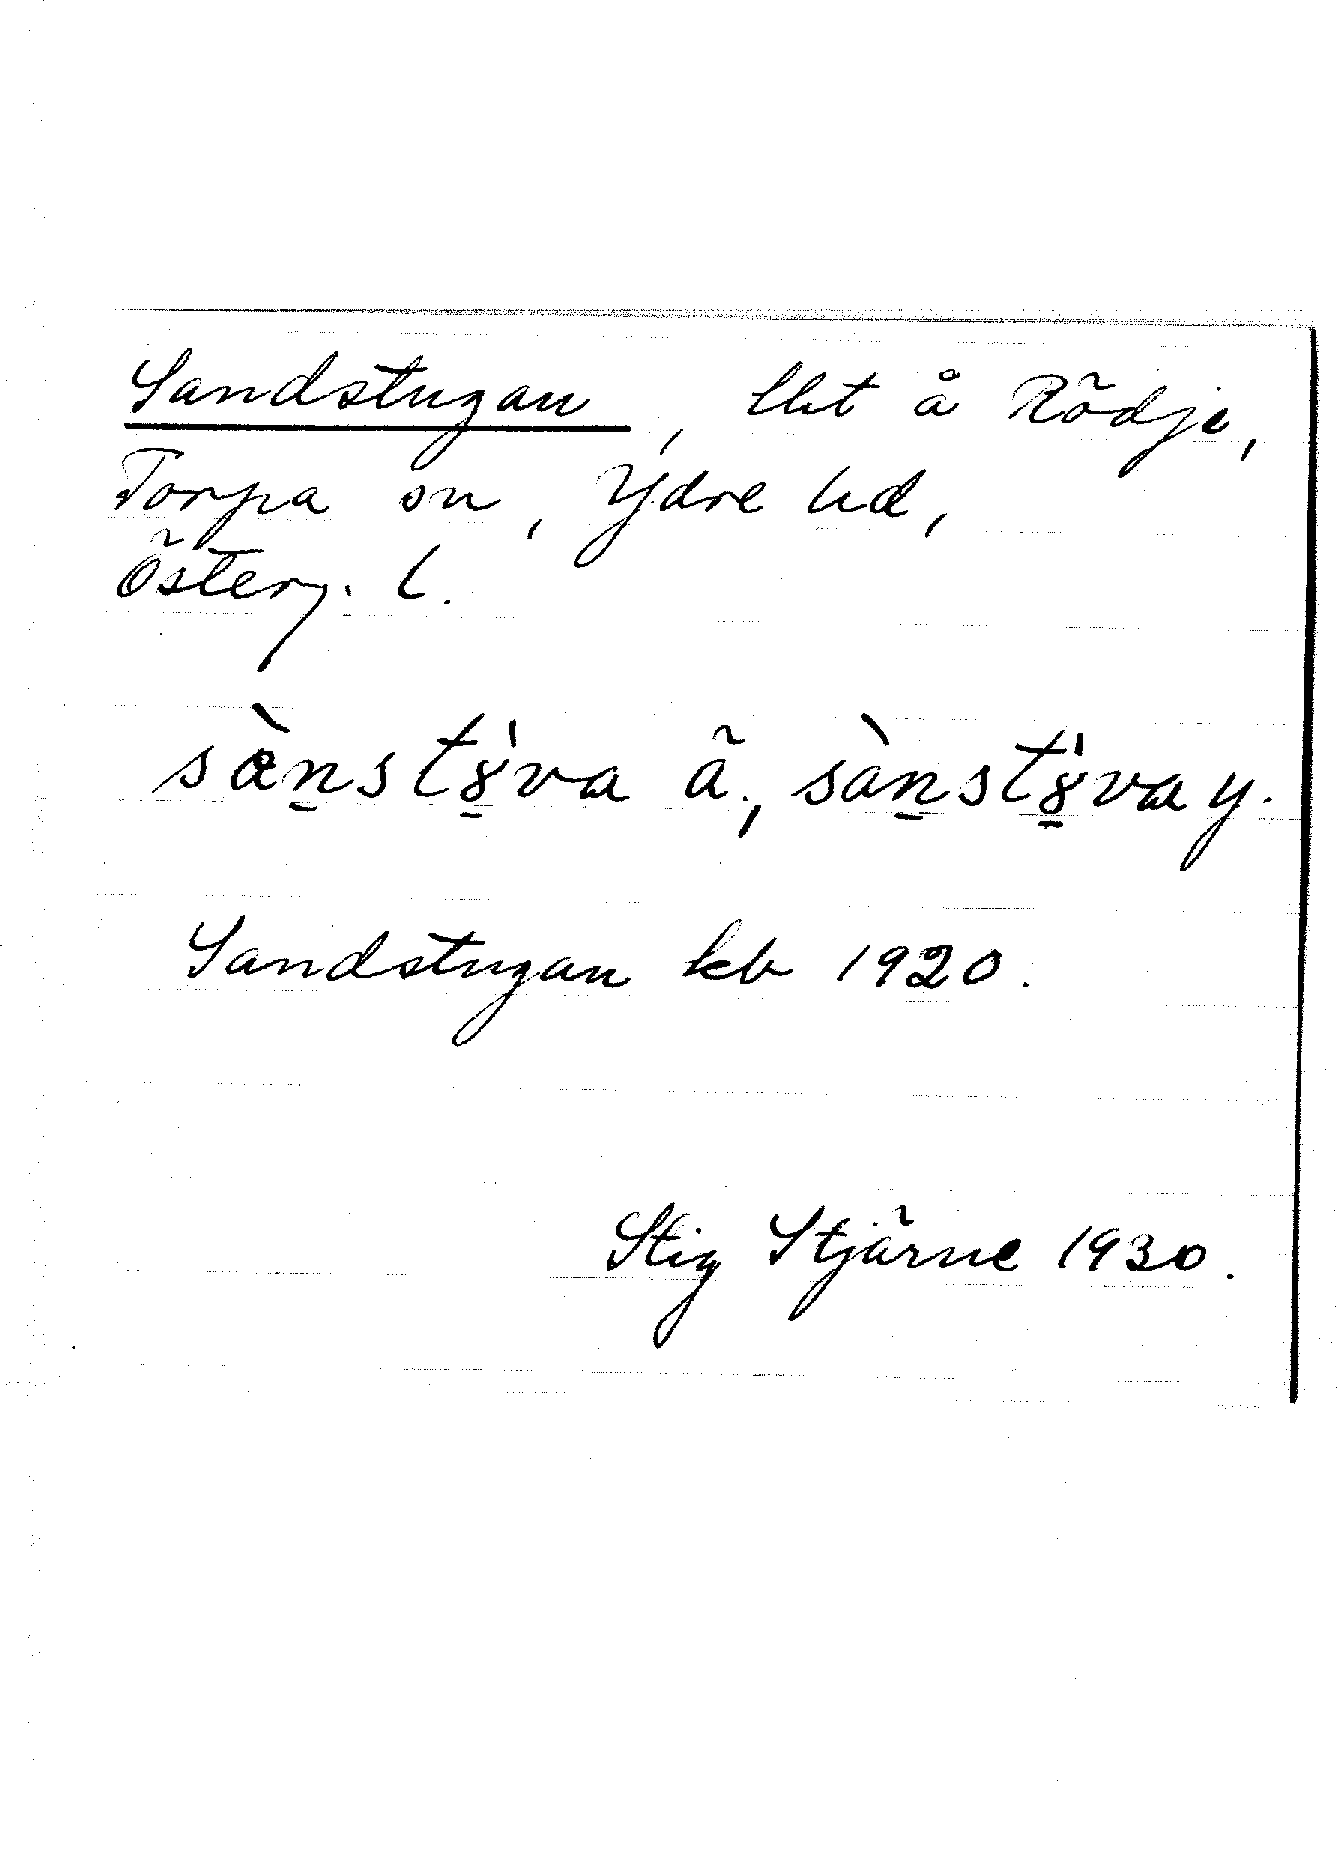 Sandstugan, lht å Rödje,
Torpa sn, Ydre hd,
Österg. l.
sànstȣ̀va ä., sànstȣ̀va y.
Sandstugan kb 1920.
Stig Stjärne 1930.